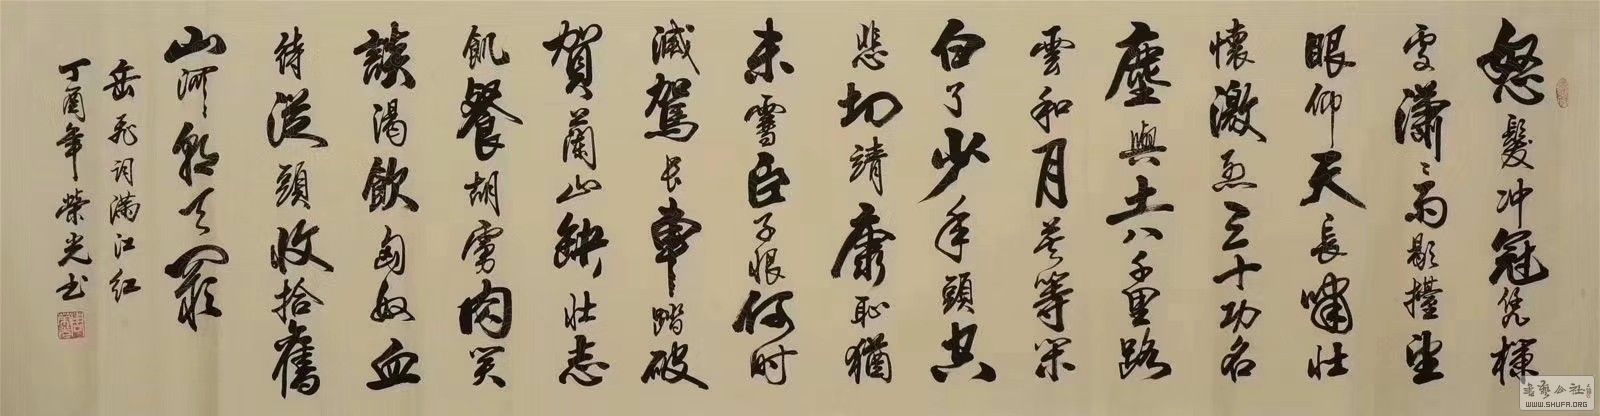 怒髮冲冠凭欄
處瀟〻雨歇擡望
眼仰天長嘯壯
懷激烈三十功名
塵與土八千里路
雲和月莫等閑
白了少年頭空
悲切靖康恥猶
未雪臣子恨何时
滅駕长車踏破
賀蘭山缺壯志
飢餐胡虜肉笑
談渴飲匈奴血
待從頭收拾舊
山河朝天闕
岳飛词滿江紅
丁酉年榮光书
书艺公社
WWW.SHUFA.ORG